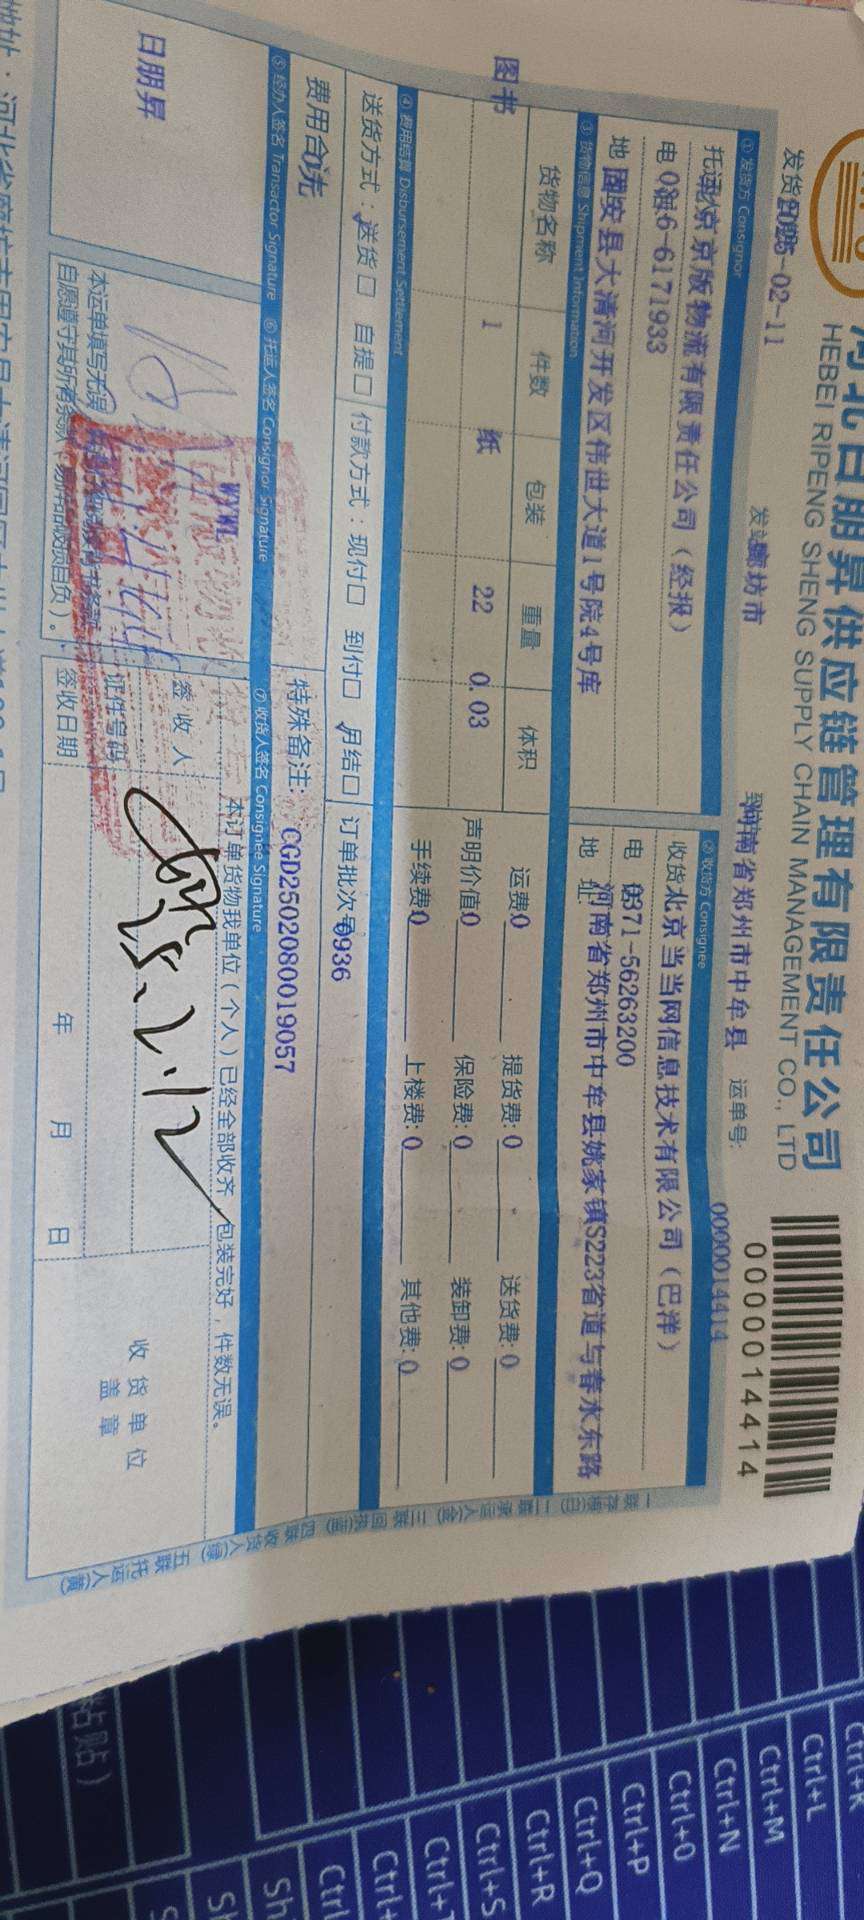 河北日朋昇供应链管理有限责任公司
HEBEI RIPENG SHENG SUPPLY CHAIN MANAGEMENT CO., LTD
0000014414
发货 2025-02-11 发站 廊坊市 到 河南省郑州市中牟县 运单号: 0000014414
① 发货方 Consignor
② 收货方 Consignee
托运 北京京版物流有限责任公司（经报）
收货 北京当当网信息技术有限公司（巴洋）
电 0316-6171933
电 0371-56263200
地 固安县大清河开发区伟世大道1号院4号库
地 址 河南省郑州市中牟县姚家镇S223省道与春水东路
③ 货物信息 Shipment Information
货物名称 件数 包装 重量 体积
图书 1 纸 22 0.03
运费:0 提货费:0 送货费:0
声明价值:0 保险费:0 装卸费:0
手续费:0 上楼费:0 其他费:0
④ 费用结算 Disbursement Settlement
送货方式：送货□ 自提□ 付款方式：现付□ 到付□ 月结□ 订单批次号 0936
费用合 0元
特殊备注: CGD2502080019057
⑤ 经办人签名 Transactor Signature ⑥ 托运人签名 Consignor Signature ⑦ 收货人签名 Consignee Signature
日朋昇
WYWL
本运单填写无误
自愿遵守其所有条款
本订单货物我单位（个人）已经全部收齐，包装完好，件数无误。
签收人
证件号码
签收日期 年 月 日
收货单位
盖章
2.12
一联 存根(白) 二联 承运人(金) 三联 回执(蓝) 四联 收货人(绿) 五联 托运人(黄)
粘贴）
Ctrl+L
Ctrl+M
Ctrl+N
Ctrl+O
Ctrl+P
Ctrl+Q
Ctrl+R
Ctrl+S